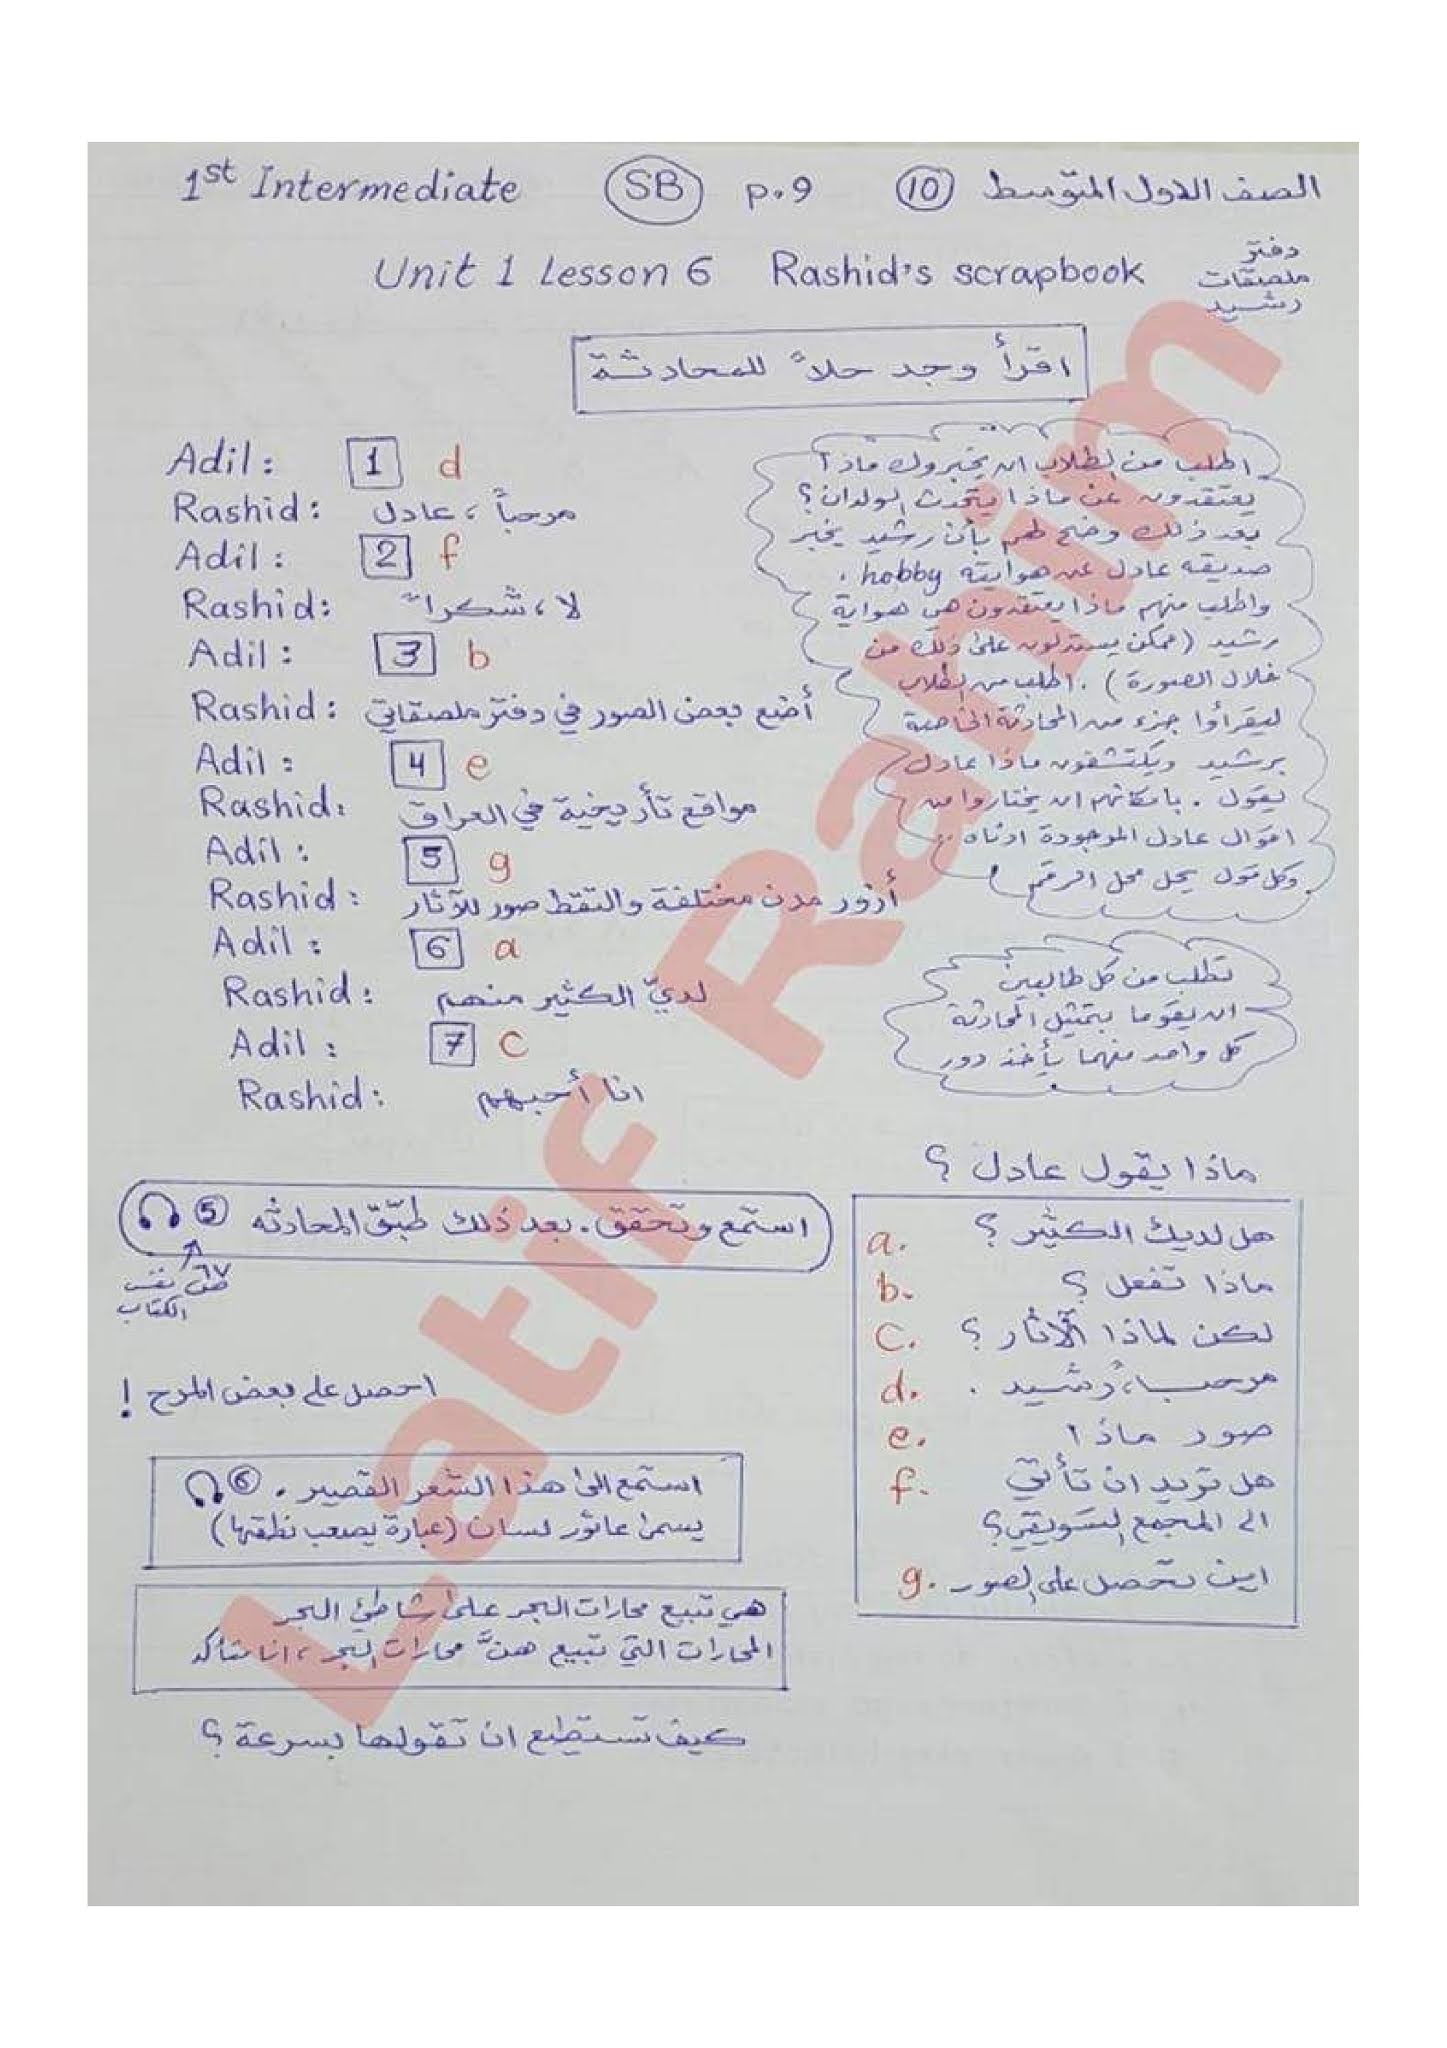 1st Intermediate SB p.9 10 الصف الاول المتوسط
Unit 1 Lesson 6 Rashid's scrapbook
دفتر
ملصقات
رشيد
اقرأ وجد حلاً للمحادثة
Adil: 1 d
Rashid: مرحباً، عادل
Adil: 2 f
Rashid: لا، شكراً
Adil: 3 b
Rashid: أضع بعض الصور في دفتر ملصقاتي
Adil: 4 e
Rashid: مواقع تأريخية في العراق
Adil: 5 g
Rashid: أزور مدن مختلفة والتقط صور للآثار
Adil: 6 a
Rashid: لديّ الكثير منهم
Adil: 7 C
Rashid: انا أحبهم
اطلب من الطلاب ان يخبروك ماذا
يعتقدون عن ماذا يتحدث الولدان؟
بعد ذلك وضح لهم بأن رشيد يخبر
صديقه عادل عن هوايته hobby.
واطلب منهم ماذا يعتقدون هي هواية
رشيد (ممكن يستدلون على ذلك من
خلال الصورة). اطلب من الطلاب
ليقرأوا جزء من المحادثة الخاصة
برشيد ويكتشفون ماذا عادل
يقول. بامكانهم ان يختاروا من
اقوال عادل الموجودة ادناه
وكل قول يحل محل الرقم
تطلب من كل طالبين
ان يقوما بتمثيل المحادثة
كل واحد منهما يأخذ دور
ماذا يقول عادل؟
a. هل لديك الكثير؟
b. ماذا تفعل؟
C. لكن لماذا الآثار؟
d. مرحباً، رشيد.
e. صور ماذا
f. هل تريد ان تأتي
الى المجمع التسويقي؟
g. اين تحصل على الصور
5 استمع وتحقق. بعد ذلك طبّق المحادثه
نفس
الكتاب
احصل على بعض المرح!
6 استمع الى هذا الشعر القصير.
يسمى عاثور لسان (عبارة يصعب نطقها)
هي تبيع محارات البحر على شاطئ البحر
المحارات التي تبيع هنَّ محارات البحر، انا متأكد
كيف تستطيع ان تقولها بسرعة؟